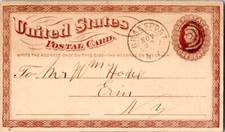 United States
POSTAL CARD.
WRITE THE ADDRESS ONLY ON THIS SIDE - THE MESSAGE ON THE OTHER
NOV
To, Mr Wm
Erin
N.Y.